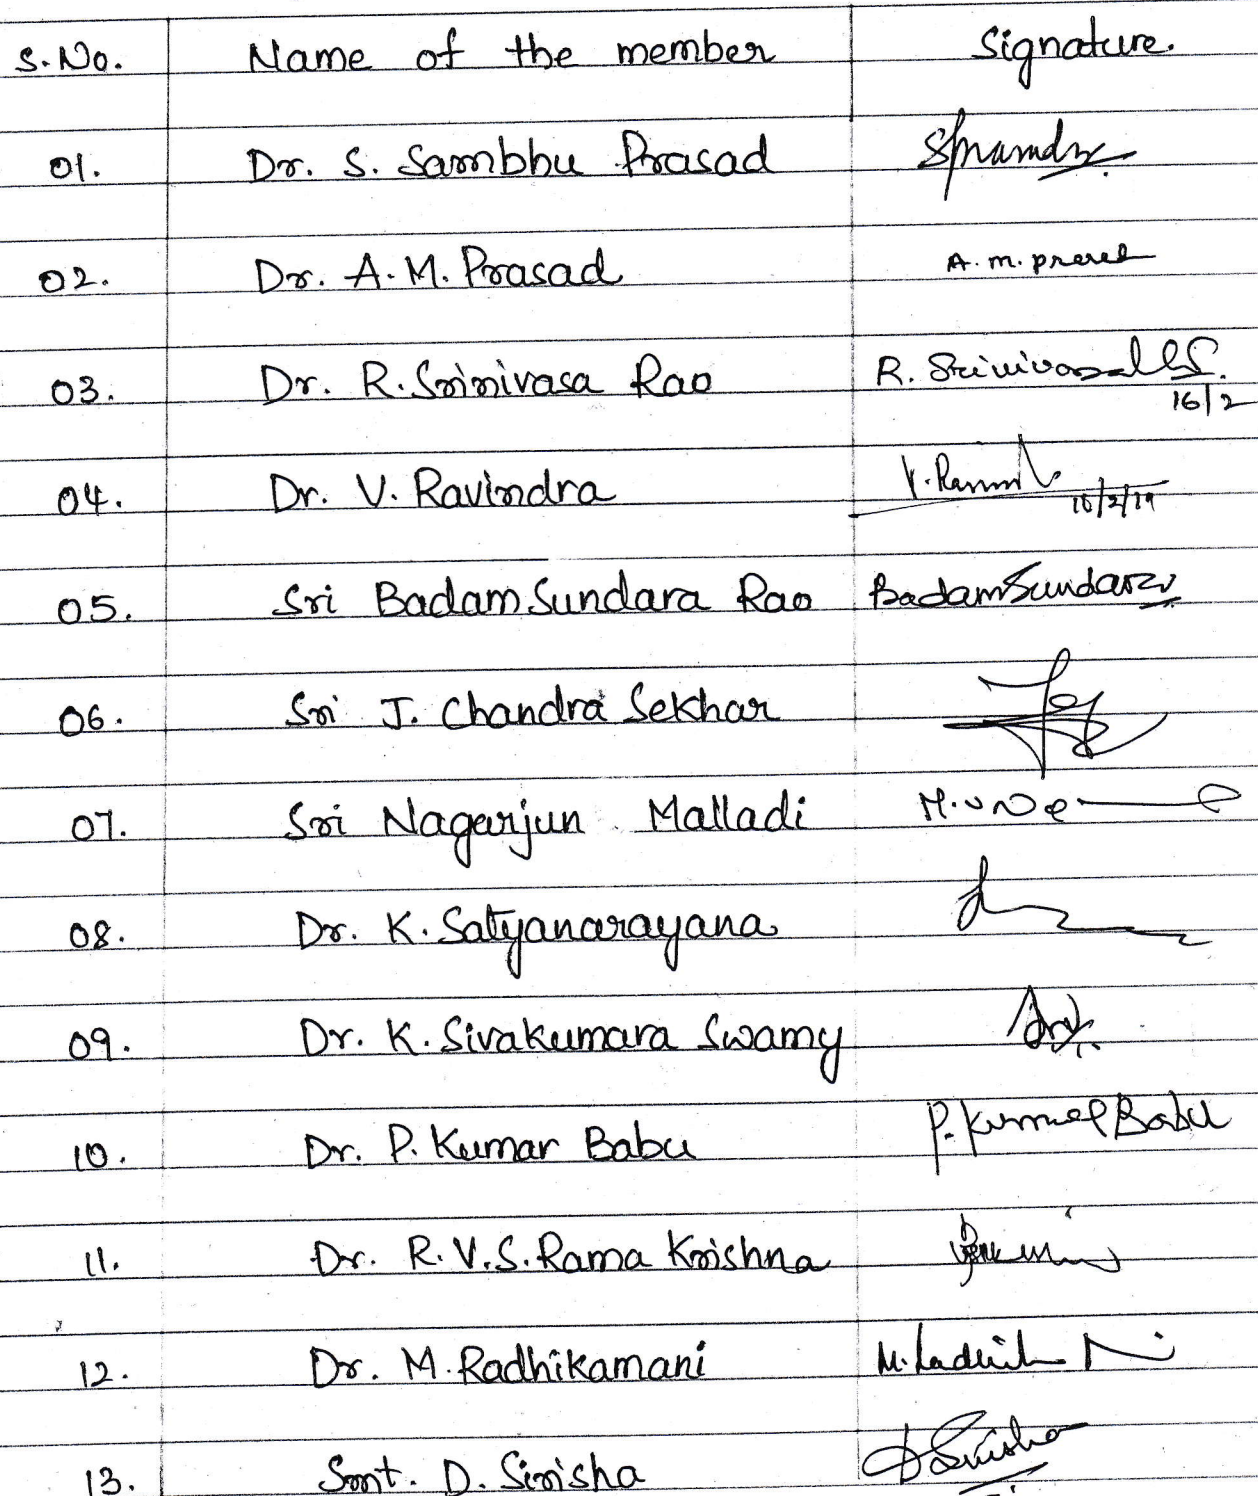 S.No. Name of the member Signature.
01. Dr. S. Sambhu Prasad
02. Dr. A.M. Prasad A.m.prasad
03. Dr. R.Srinivasa Rao R. Srinivasa
16/2
04. Dr. V. Ravindra V.
16/2/19
05. Sri Badam Sundara Rao Badam Sundara
06. Sri J. Chandra Sekhar
07. Sri Nagarjun Malladi
08. Dr. K. Satyanarayana
09. Dr. K. Sivakumara Swamy
10. Dr. P. Kumar Babu P. Kumar Babu
11. Dr. R.V.S. Rama Krishna
12. Dr. M. Radhikamani M.
13. Smt. D. Sirisha D Sirisha